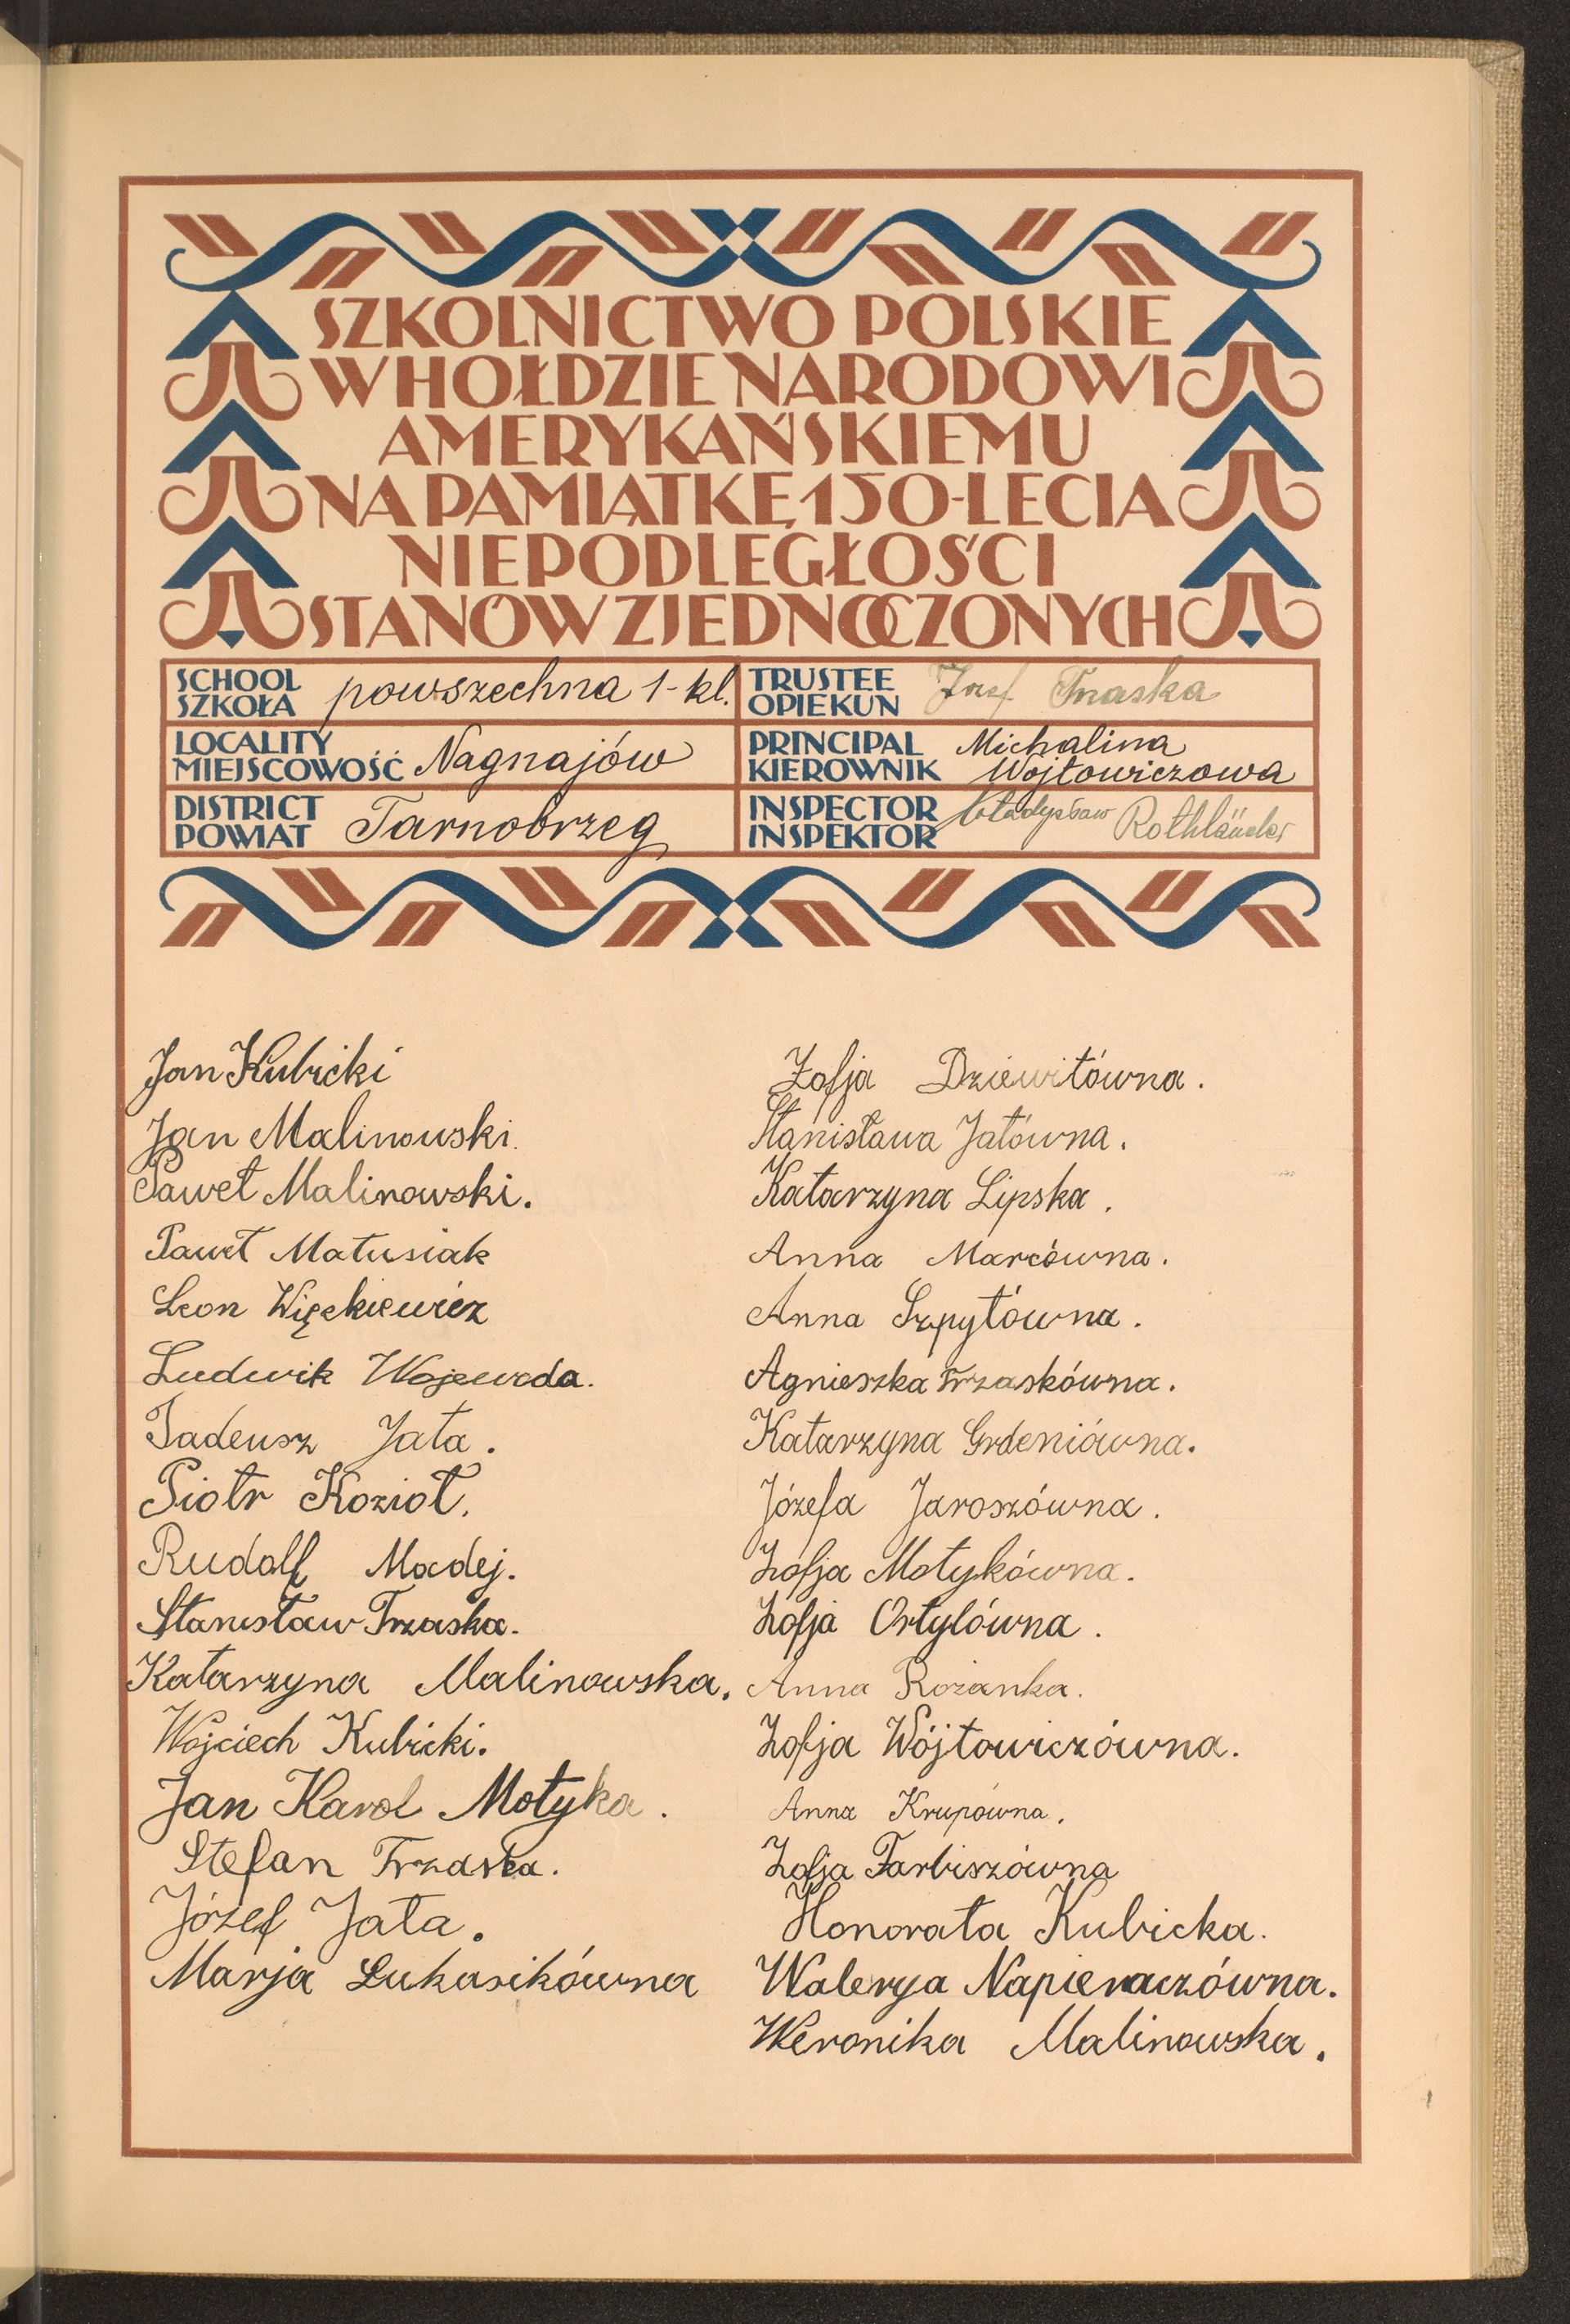 SZKOLNICTWO POLSKIE
W HOŁDZIE NARODOWI
AMERYKAŃSKIEMU
NA PAMIĄTKĘ 150-LECIA
NIEPODLEGŁOŚCI
STANÓW ZJEDNOCZONYCH
SCHOOL
SZKOŁA powszechna 1-kl.
TRUSTEE
OPIEKUN Józef Trzaska
LOCALITY
MIEJSCOWOŚĆ Nagnajów
PRINCIPAL Michalina
KIEROWNIK Wojtowiczowa
DISTRICT
POWIAT Tarnobrzeg
INSPECTOR
INSPEKTOR Władysław Rothländer
Jan Kubicki
Jan Malinowski.
Paweł Malinowski.
Paweł Matusiak
Leon Więckiewicz
Ludwik Wojewoda.
Tadeusz Jata.
Piotr Kozioł.
Rudolf Madej.
Stanisław Trzaska.
Katarzyna Malinowska.
Wojciech Kubicki.
Jan Karol Motyka.
Stefan Trzaska.
Józef Jata.
Marja Łukasikówna
Zofja Dziewitówna.
Stanisława Jatówna.
Katarzyna Lipska.
Anna Marcówna.
Anna Szpytówna.
Agnieszka Trzaskówna.
Katarzyna Grdeniówna.
Józefa Jaroszówna.
Zofja Motykówna.
Zofja Ortylówna.
Anna Rożanka.
Zofja Wójtowiczówna.
Anna Krupówna.
Zofja Tarbiszówna
Honorata Kubicka.
Walerya Napieraczówna.
Weronika Malinowska.